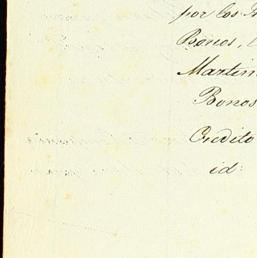 por los
Bonos,
Martin
Bonos
Credito
id: